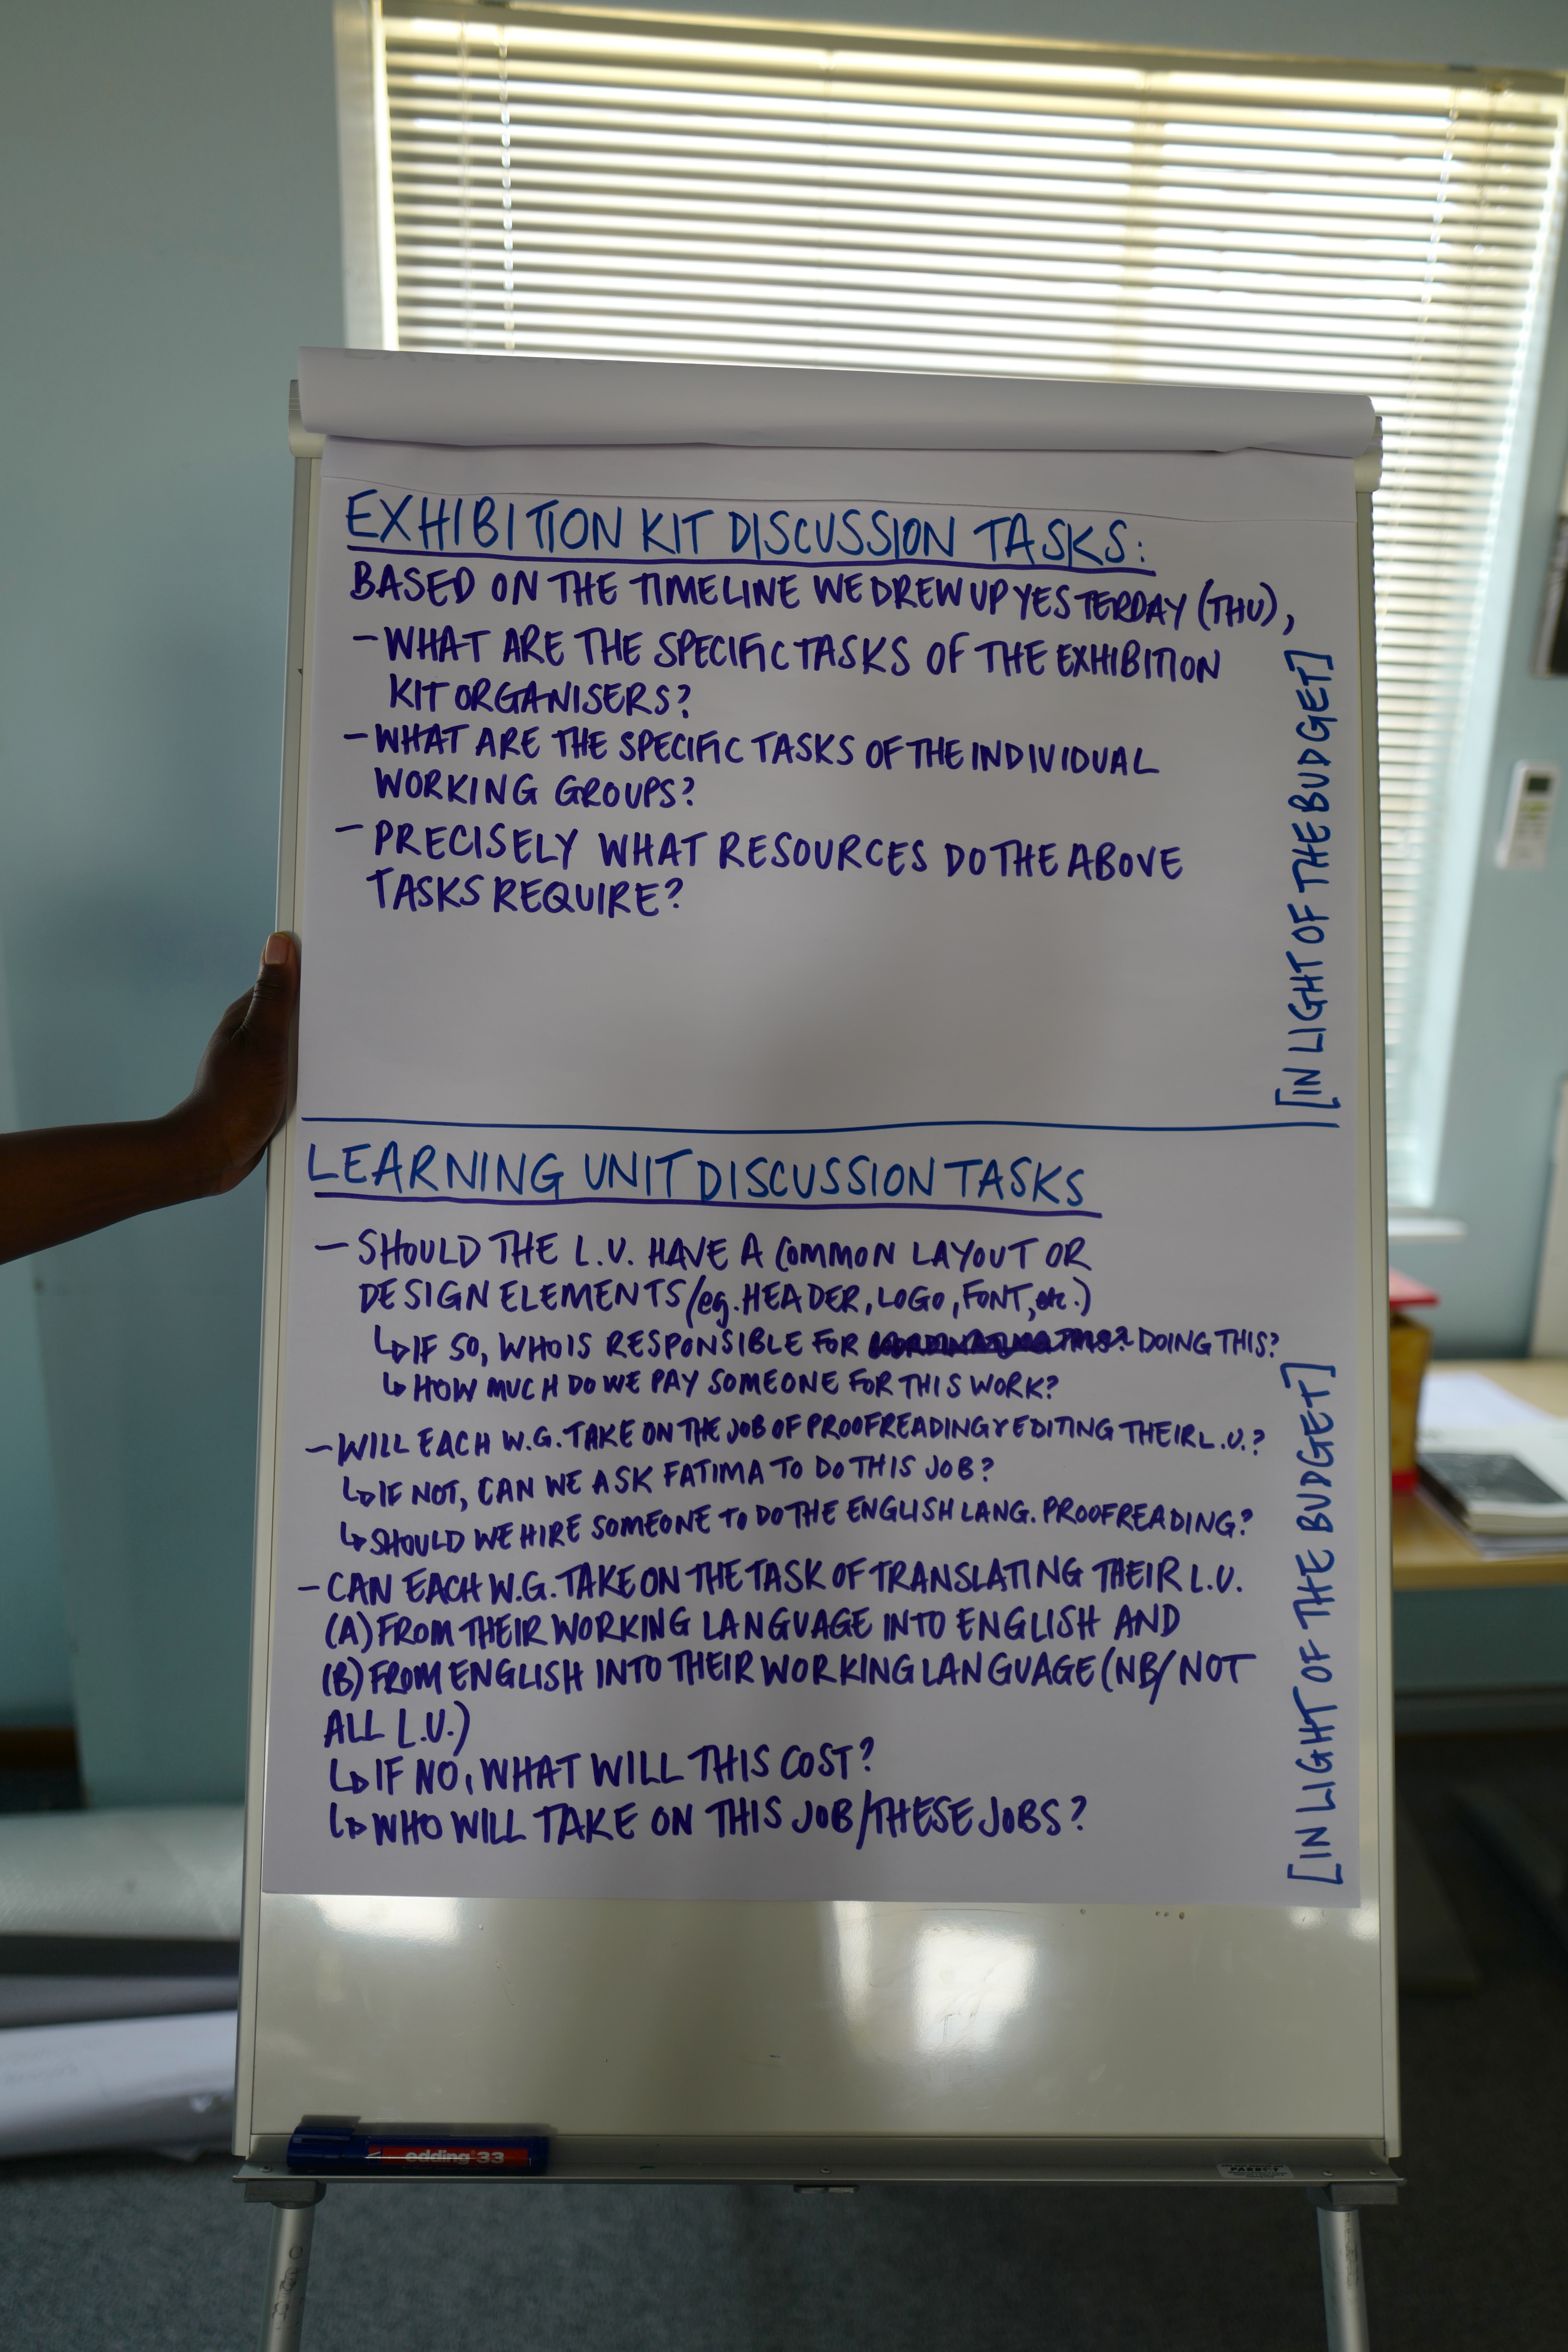 EXHIBITION KIT DISCUSSION TASKS:
BASED ON THE TIMELINE WE DREW UP YESTERDAY (THU),
- WHAT ARE THE SPECIFIC TASKS OF THE EXHIBITION
KIT ORGANISERS?
- WHAT ARE THE SPECIFIC TASKS OF THE INDIVIDUAL
WORKING GROUPS?
- PRECISELY WHAT RESOURCES DO THE ABOVE
TASKS REQUIRE?
[IN LIGHT OF THE BUDGET]
LEARNING UNIT DISCUSSION TASKS
- SHOULD THE L.U. HAVE A COMMON LAYOUT OR
DESIGN ELEMENTS (eg. HEADER, LOGO, FONT, etc.)
↳ IF SO, WHO IS RESPONSIBLE FOR DOING THIS?
↳ HOW MUCH DO WE PAY SOMEONE FOR THIS WORK?
- WILL EACH W.G. TAKE ON THE JOB OF PROOFREADING & EDITING THEIR L.U.?
↳ IF NOT, CAN WE ASK FATIMA TO DO THIS JOB?
↳ SHOULD WE HIRE SOMEONE TO DO THE ENGLISH LANG. PROOFREADING?
- CAN EACH W.G. TAKE ON THE TASK OF TRANSLATING THEIR L.U.
(A) FROM THEIR WORKING LANGUAGE INTO ENGLISH AND
(B) FROM ENGLISH INTO THEIR WORKING LANGUAGE (NB/NOT
ALL L.U.)
↳ IF NO, WHAT WILL THIS COST?
↳ WHO WILL TAKE ON THIS JOB/THESE JOBS?
[IN LIGHT OF THE BUDGET]
edding 33
PARROT